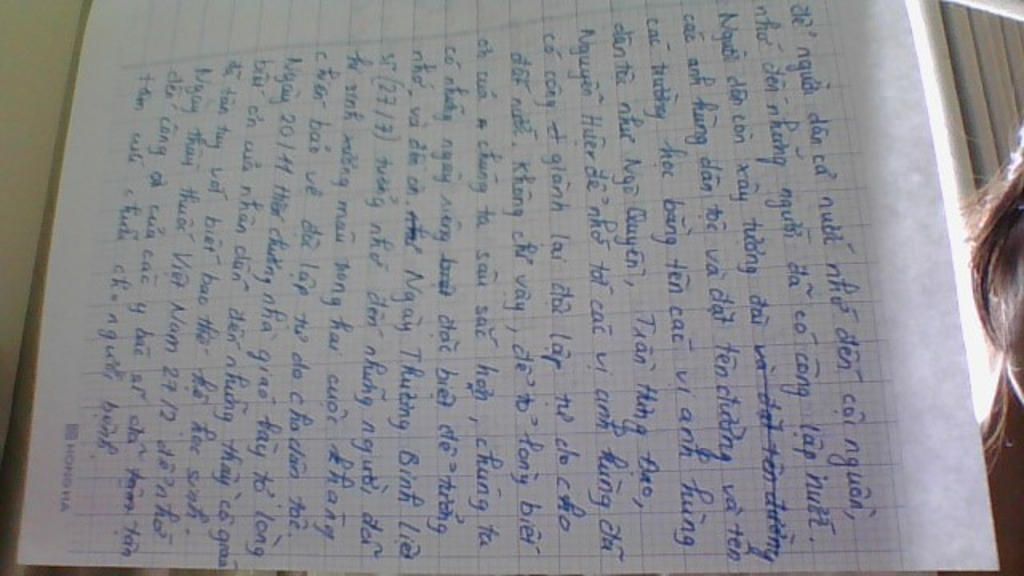 để người dân cả nước nhớ đến cội nguồn,
nhớ đến những người đã có công lập nước.
Người dân còn xây tượng đài và đặt tên đường
các anh hùng dân tộc và đặt tên đường và tên
các trường học bằng tên các vị anh hùng
dân tộc như Ngô Quyền, Trần Hưng Đạo,
Nguyễn Hiền để nhớ tới các vị anh hùng đã
có công giành lại độc lập tự do cho
đất nước. Không chỉ vậy, để tỏ lòng biết
ơn của chúng ta sâu sắc hơn, chúng ta
có những ngày riêng đặc biệt để tưởng
nhớ và đền ơn. Ngày Thương Binh Liệt
sĩ (27/7) tưởng nhớ đến những người đã
hi sinh xương máu trong hai cuộc kháng
chiến bảo vệ độc lập tự do cho dân tộc.
Ngày 20/11 Hiến chương nhà giáo bày tỏ lòng
biết ơn của nhân dân đến những thầy cô giáo
đã tận tụy với biết bao thế hệ học sinh.
Ngày thầy thuốc Việt Nam 27/2 để nhớ
đến công ơn của các y bác sĩ đã tâm tận
tâm cứu chữa cho người bệnh.
HONG HA